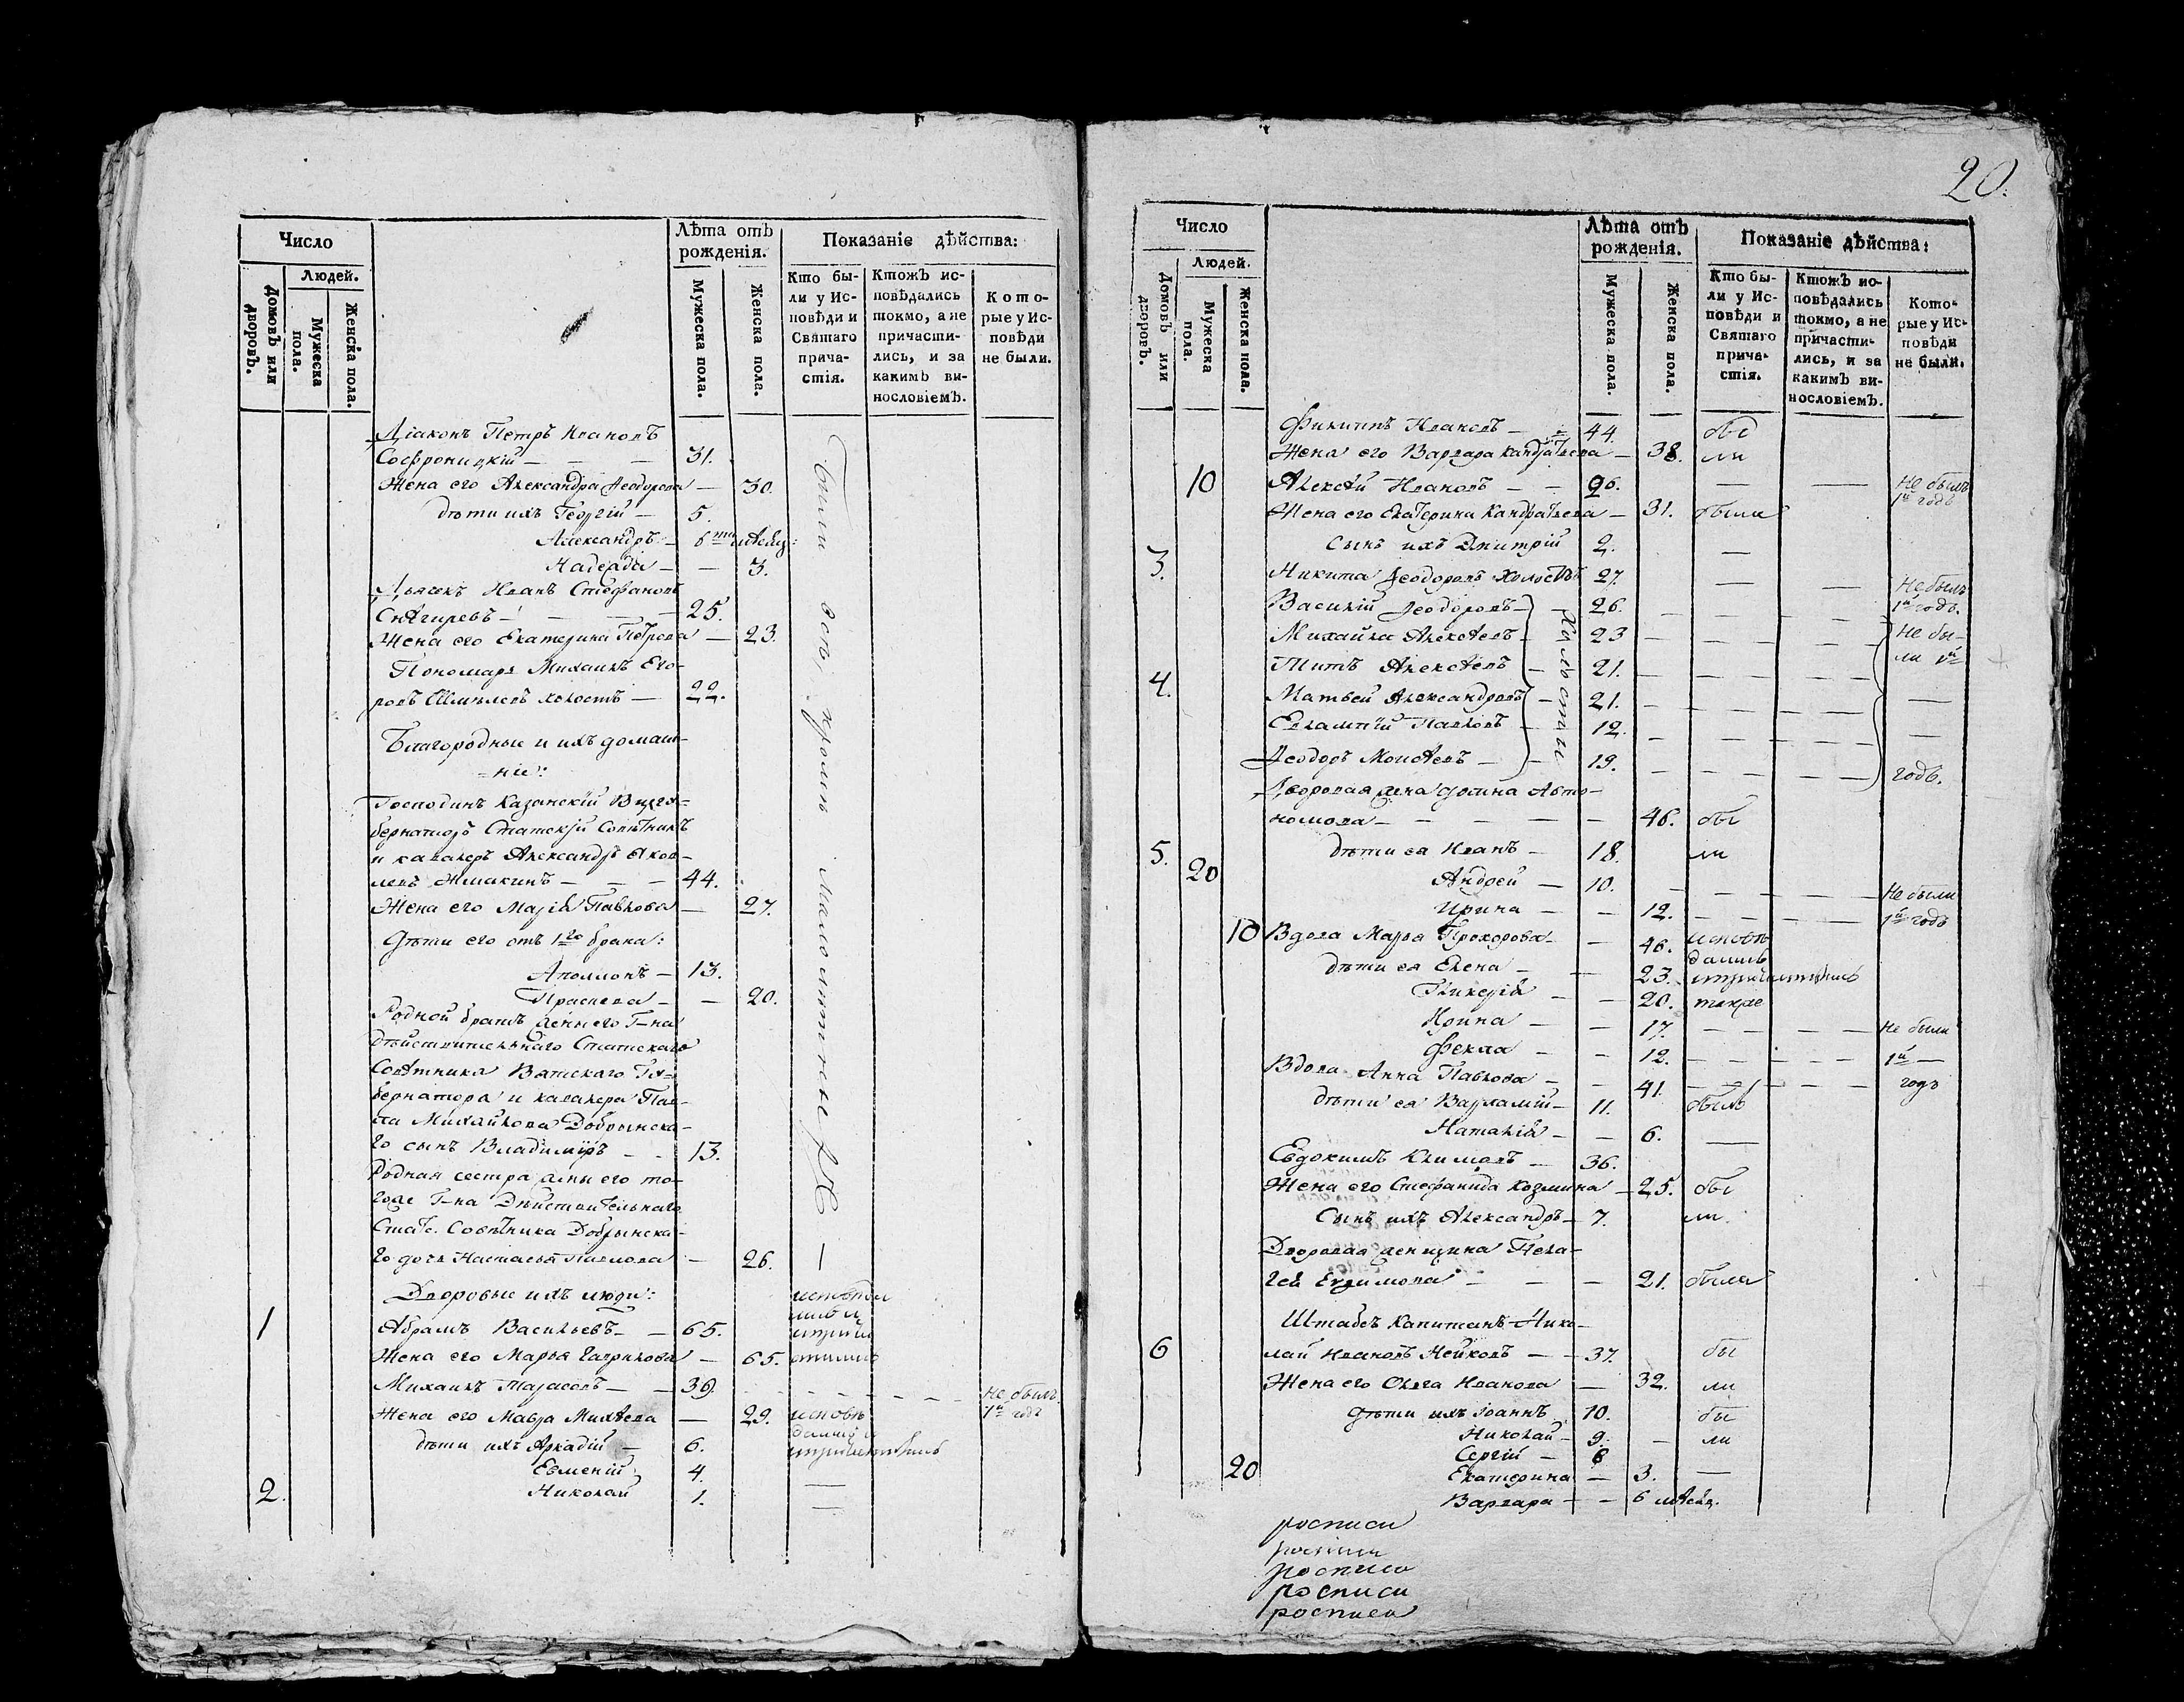 Число
Людей.
Домовъ или дворовъ.
Мужеска пола.
Женска пола.
Лѣта отъ рожденія.
Мужеска пола.
Женска пола.
Показаніе дѣйства:
Кто бы-
ли у Ис-
повѣди и
Святаго
прича-
стія.
Ктожъ ис-
повѣдались
токмо, а не
причасти-
лись, и за
какимъ ви-
нословіемъ.
Кото-
рые у Ис-
повѣди
не были.
Діаконъ Петръ Ивановъ
Софроницкій — — — 31.
Жена его Александра Ѳеодорова — 30.
дѣти ихъ Георгій — 5.
Александръ — 6 ти мѣсяц:
Надежда — — 3.
Дьячекъ Иванъ Стефановъ
Снѣгиревъ — — — 25.
Жена его Екатерина Петрова — 23.
Пономарь Михаилъ Его-
ровъ холостъ — 22.
Были всѣ кромѣ малолѣтныхъ —
Благородные и ихъ домаш-
ніе:
Господинъ Казанскій Вицегу-
бернаторъ Статскій Совѣтникъ
и кавалеръ Александръ Яков-
левъ Жмакинъ — — — 44.
Жена его Марія Павлова — 27.
Дѣти его отъ 1го брака:
Аполлонъ — 13.
Прасковья — — 20.
Родной братъ жены его Г-на
дѣйствительнаго Статскаго
Совѣтника Вятскаго Гу-
бернатора и кавалера Пав-
ла Михайлова Добрынска-
го сынъ Владиміръ — - 13.
Родная сестра жены его то-
гоже Г-на Дѣйствительнаго
Статс. Совѣтника Добрынска-
го дочь Настасья Павлова — 26. —
Дворовые ихъ люди:
1 Абрамъ Васильевъ — — 65.
Жена его Марья Гаврилова — 65.
Михаилъ Тарасовъ — — 39. Не былъ 1й годъ
Жена его Мавра Михѣева — 29.
дѣти ихъ Аркадій — 6.
Евменій 4. —
2. Николай 1.
20.
Число
Людей.
Домовъ или дворовъ.
Мужеска пола.
Женска пола.
Лѣта отъ рожденія.
Мужеска пола.
Женска пола.
Показаніе дѣйства:
Кто бы-
ли у Ис-
повѣди и
Святаго
прича-
стія.
Ктожъ ис-
повѣдались
токмо, а не
причасти-
лись, и за
какимъ ви-
нословіемъ.
Кото-
рые у Ис-
повѣди
не были.
Филиппъ Ивановъ — - 44. бы
Жена его Варвара Кандратьева — 38. ли
10 Алексѣй Ивановъ — — 96. — — Не былъ 1й годъ
Жена его Екатерина Кандратьева — 31. была
Сынъ ихъ Дмитрій 2. —
3. Никита Ѳеодоровъ холостъ 27. — — Не былъ 1й годъ.
Василій Ѳеодоровъ — 26.
Михайла Алексѣевъ — 23 Не бы-
Титъ Алексѣевъ — 21. ли 1й
4. Матвей Александровъ — 21. —
Евлампій Павловъ — 12. —
Ѳеодоръ Моисѣевъ — — 19. годъ.
Холосты
Дворовая жена Фотина Авто-
номова — — — — — 46. бы
5. дѣти ея Иванъ — 18. ли
20 Андрей — 10. Не были
Ирина — — 12. 1й годъ
10 Вдова Марья Прохорова — — 46. исповѣ
дались
дѣти ея Елена — — 23. и причастились
Гликерія — — 20. также
Нонна — — 17. Не были
Фекла — — 12. 1й —
Вдова Анна Павлова — — 41. годъ
дѣти ея Варламій — 11. былъ
Наталія — — 6. —
Евдокимъ Климовъ — 36.
Жена его Стефанида Козмина — 25. бы
Сынъ ихъ Александръ — 7. ли.
Дворовая женщина Пела-
гея Евдимова — — — 21. была
Штабсъ Капитанъ Нико-
6 лай Ивановъ Нейковъ — — 37. бы
Жена его Ольга Иванова — 32. ли
дѣти ихъ Іоаннъ 10. бы
Николай — 9. — ли
Сергій — 6
20 Екатерина — 3. —
Варвара — — 6 мѣсяц.
росписи
росписи
росписи
росписи
росписи